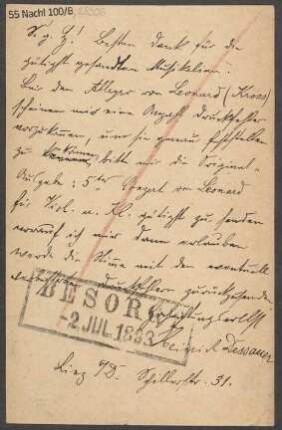 55 Nachl 100/B,
S. g. H.! Besten Dank für die
gütigst gesandten Musikalien.
Bei dem Allegro von Leonard (Kross)
scheinen mir eine Anzahl Druckfehler
vorzukommen, um sie genau feststellen
zu können, bitte mir die Original-
Ausgabe: 5tes von Leonard
für Viol. u. Kl. gütigst zu senden
worauf ich mir dann erlauben
werde die Stimme mit den eventuell
Druckfehlern zurückzusenden
Hochachtungsvollst
BESORGT
-2 JUL 1893
Heinrich Dessauer
Linz a/D. Schillerstr. 31.